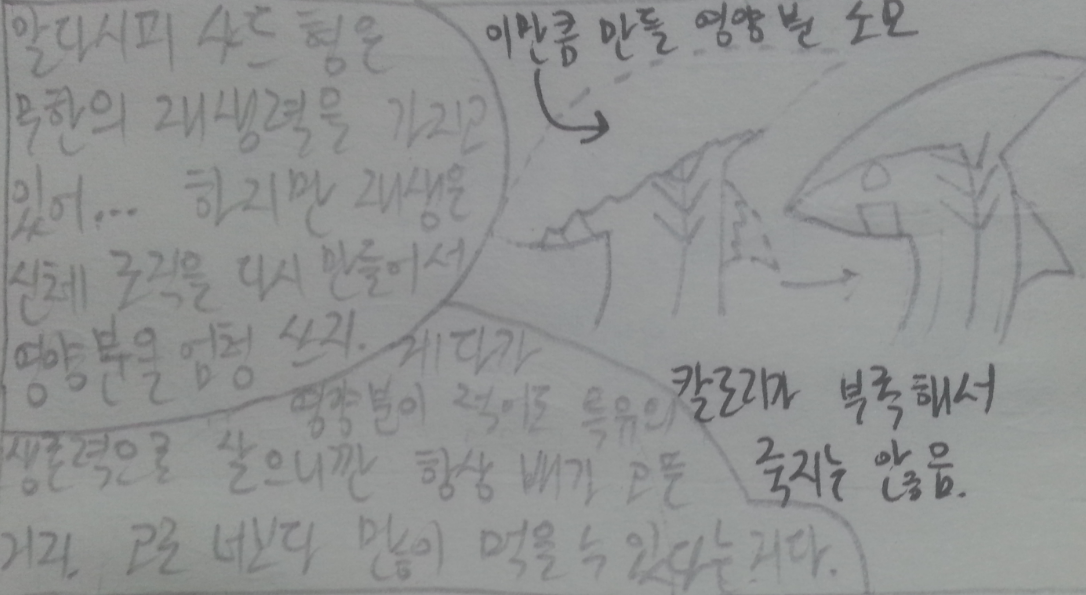 알다시피 샤드 형은
무한의 재생력을 가지고
있어... 하지만 재생은
신체 조직을 다시 만들어서
영양분을 엄청 쓰지. 게다가
영양분이 적어도 특유의
생존력으로 살으니깐 항상 배가 고픈
거라. 고로 너보다 많이 먹을 수 있다는 거다.
이만큼 만들 영양분 소모
칼로리가 부족해서
죽지는 않음.